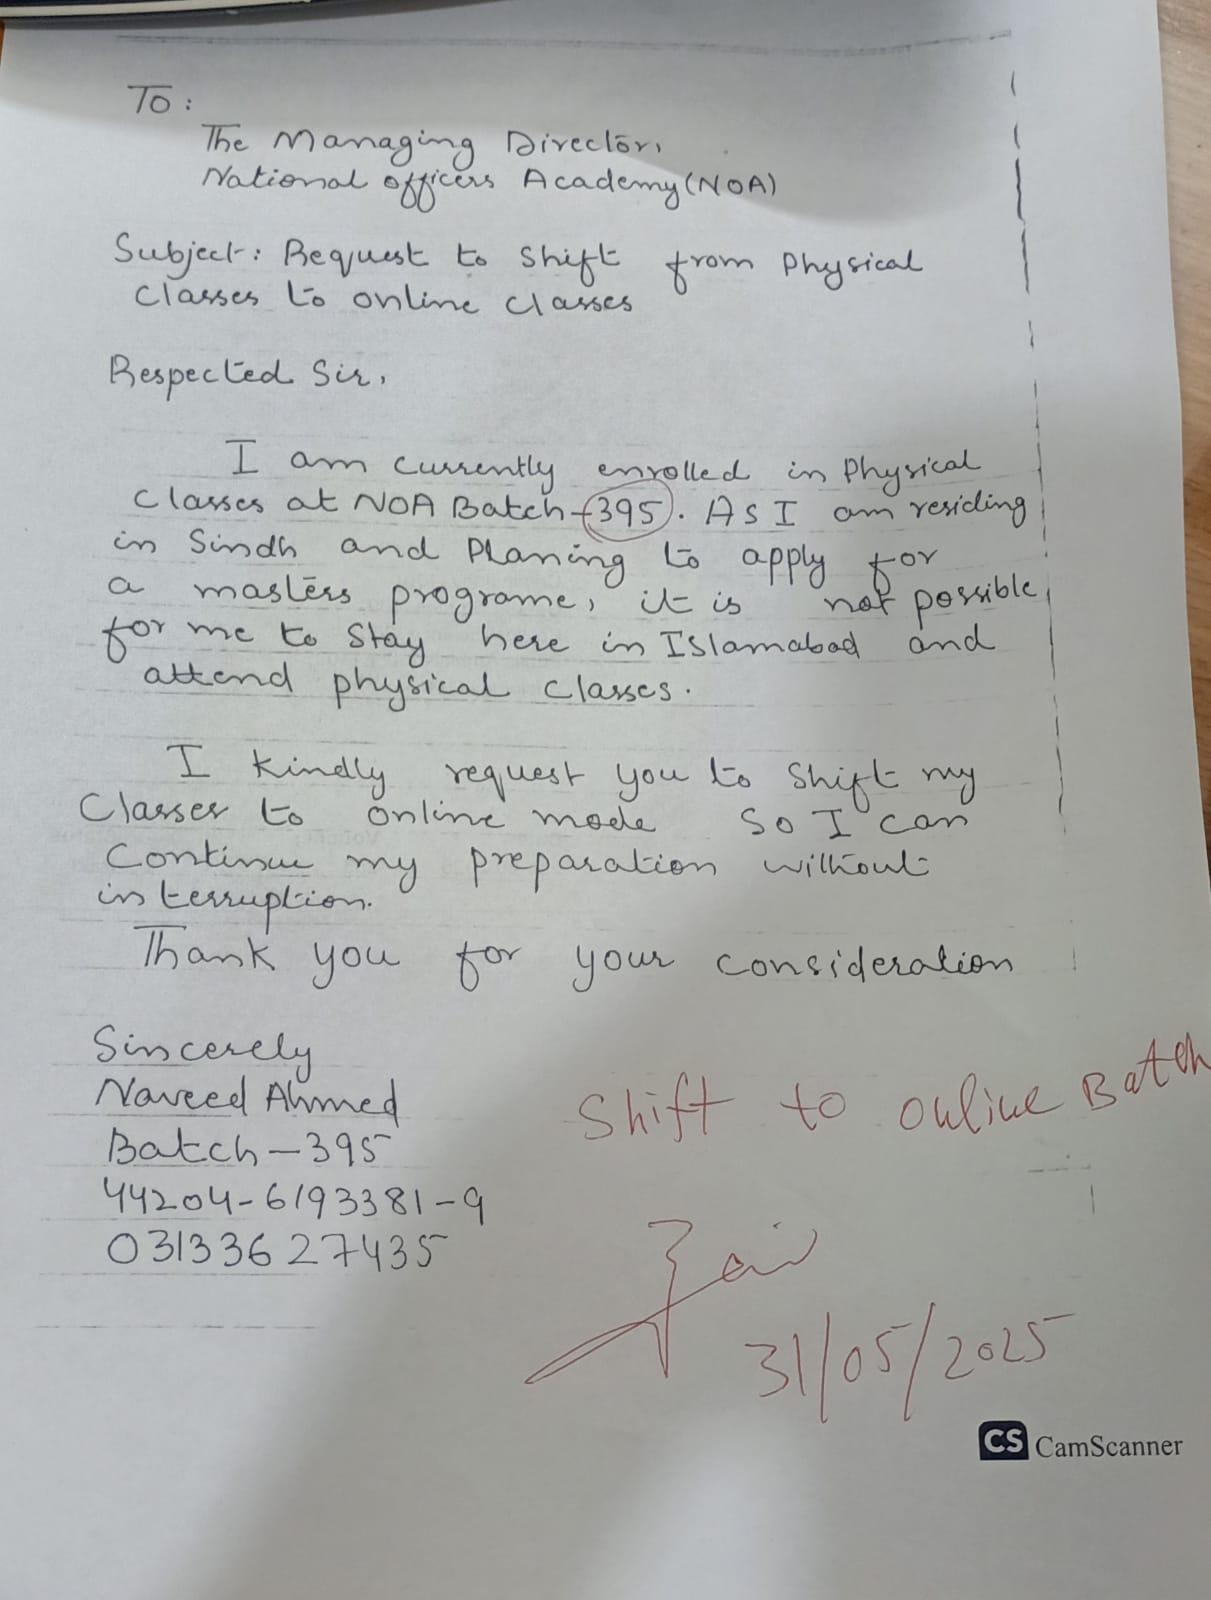 To:
The Managing Director,
National officers Academy (NOA)
Subject: Request to Shift from Physical
Classes to online classes
Respected Sir,
I am currently enrolled in Physical
Classes at NOA Batch-395. As I am residing
in Sindh and Planing to apply for
a masters programe, it is not possible
for me to Stay here in Islamabad and
attend physical classes.
I kindly request you to Shift my
Classes to online mode so I can
Continue my preparation without
interruption.
Thank you for your consideration
Sincerely
Naveed Ahmed
Batch-395
44204-6193381-9
03133627435
Shift to online Batch
31/05/2025
CS CamScanner